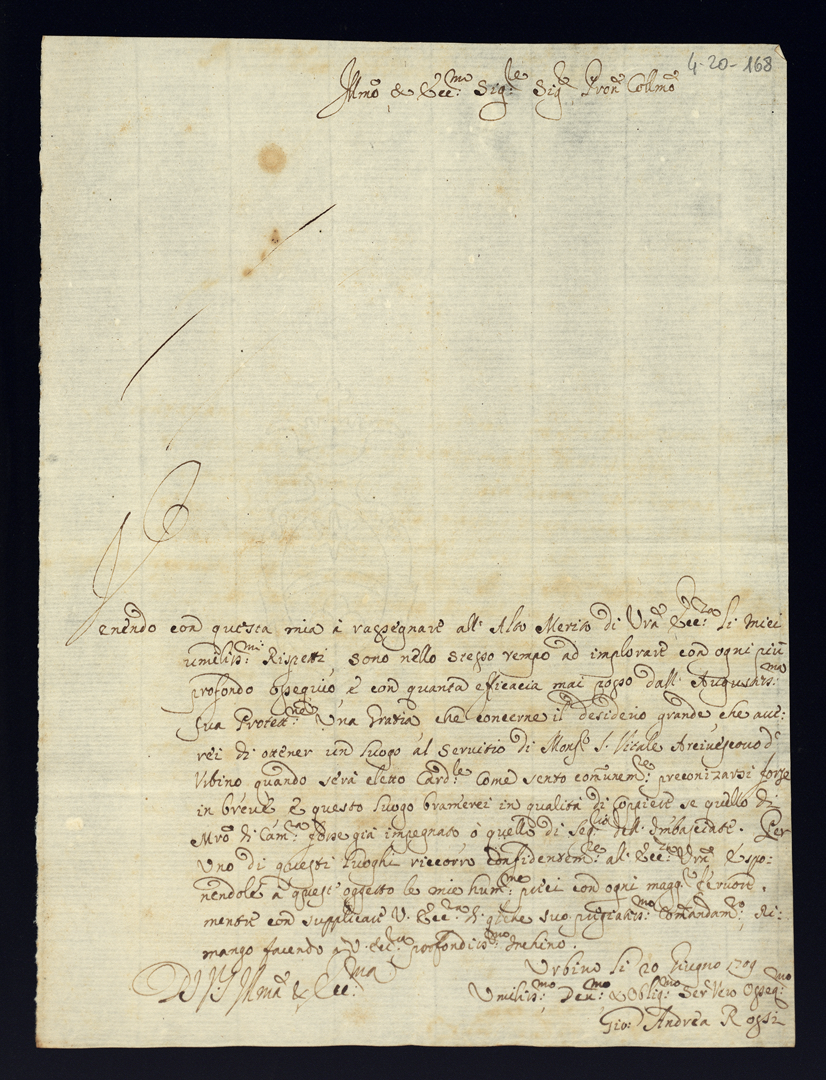 4-20-168
Illmo & Ecc:mo Sig:re Sig:re Pron Collmo
Venendo con questa mia à rassegnare all' Alto Merito di Vra Ecc:za li miei
umiliss:mi Rispetti, sono nello stesso tempo ad implorare con ogni più
profondo ossequio, è con quanta efficacia mai posso dall' Augustiss:ma
sua Protett:ne Una Gratia che concerne il desiderio grande, che aue:
rei di ottener un luogo al Servitio di Monsr S. Vitale Arciuescouo d'
Vrbino quando serà eletto Card:le Come sento comunem:te preconizarsi forse
in breue è questo luogo bramerei in qualità di Coppiere se quello di
Mro di Cam:ra fosse già impegnato ò quello di Seg:rio dell' Imbasciate. Per
Uno di questi luoghi riccorro confidentem:te all' Ecc:za Vra Espo:
nendole à quest' oggetto le mie hum:me preci con ogni magg:r feruore,
mentre con supplicare V. Ecc:za di suo pregiatiss:mo Comandam:to, Ri:
mango facendo a V. Ecc:za profondiss:mo Inchino.
Urbino li 20 Giugno 1709
Di V: S Illma & Ecc:ma
Umiliss:mo Deu:mo & Oblig:mo Ser Vero Osseq:mo
Gio: Andrea Rossi